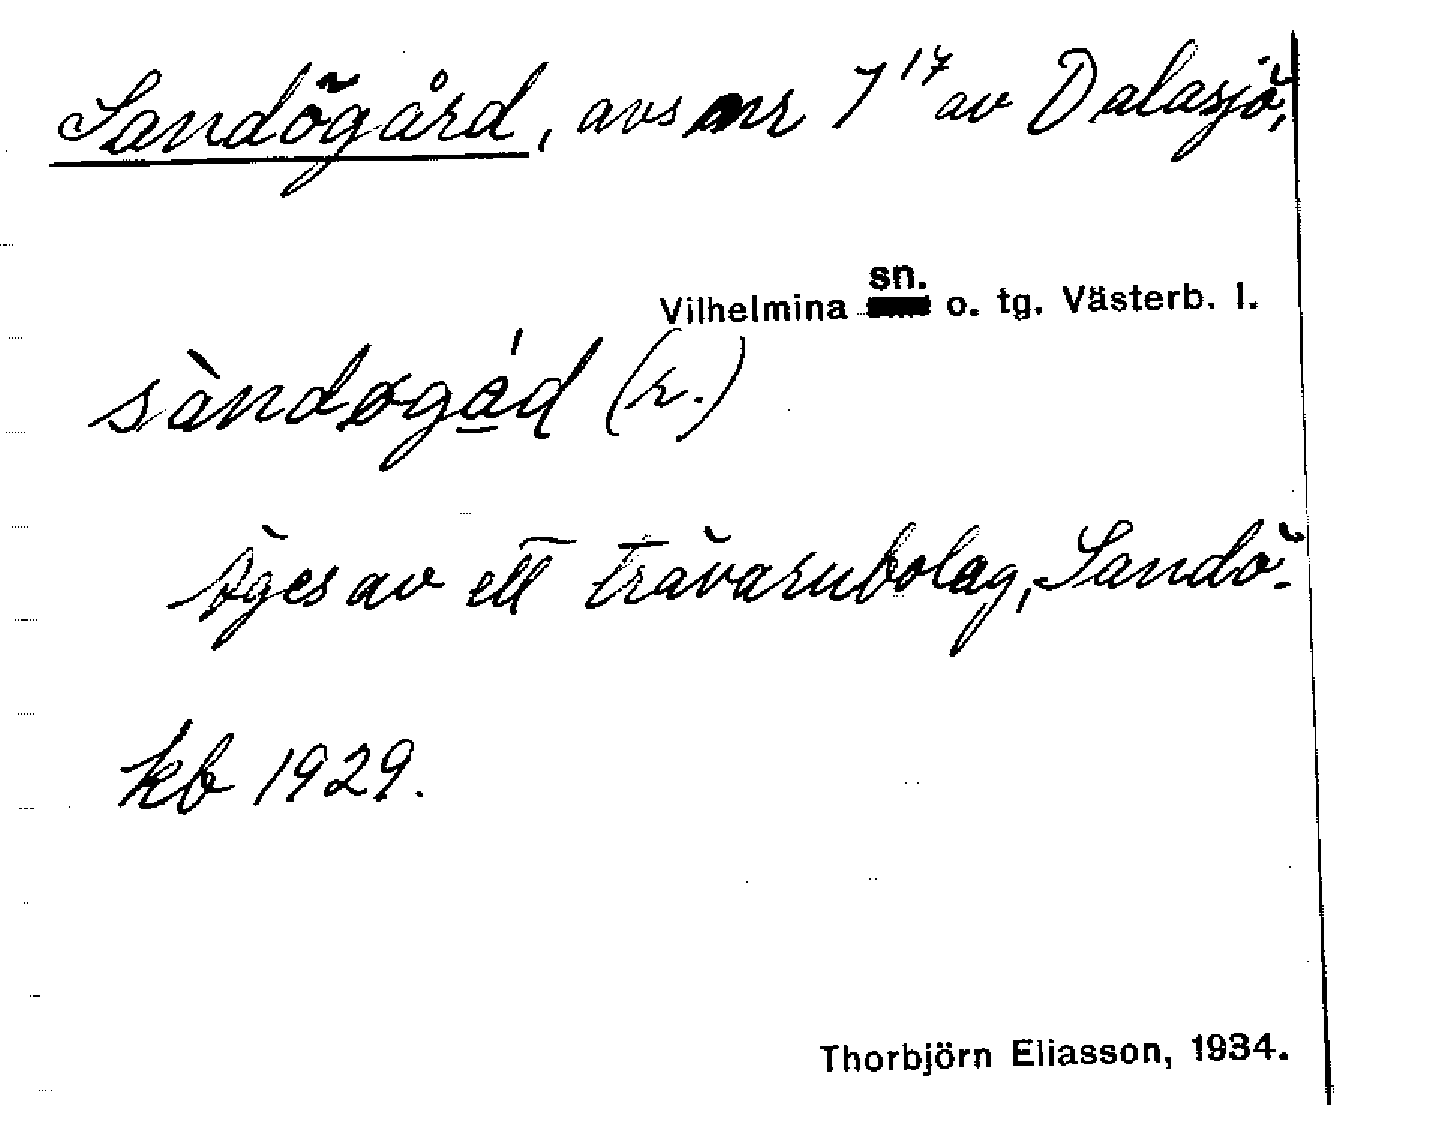 Sandögård, avs nr 1¹⁷ av Dalasjö,
sn.
Vilhelmina o. tg. Västerb. l.
sàndøgá̱d (r.)
Äges av ett trävarubolag, Sandö.
kb 1929.
Thorbjörn Eliasson, 1934.